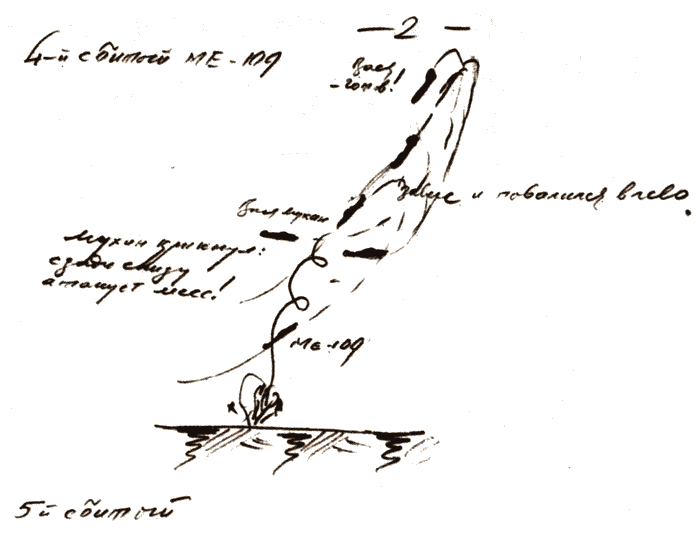 — 2 —
4-й сбитый МЕ-109
Вася
завис и повалился влево.
Вася Мухин
Мухин крикнул:
сзади снизу
атакует месс!
МЕ-109
5й сбитый